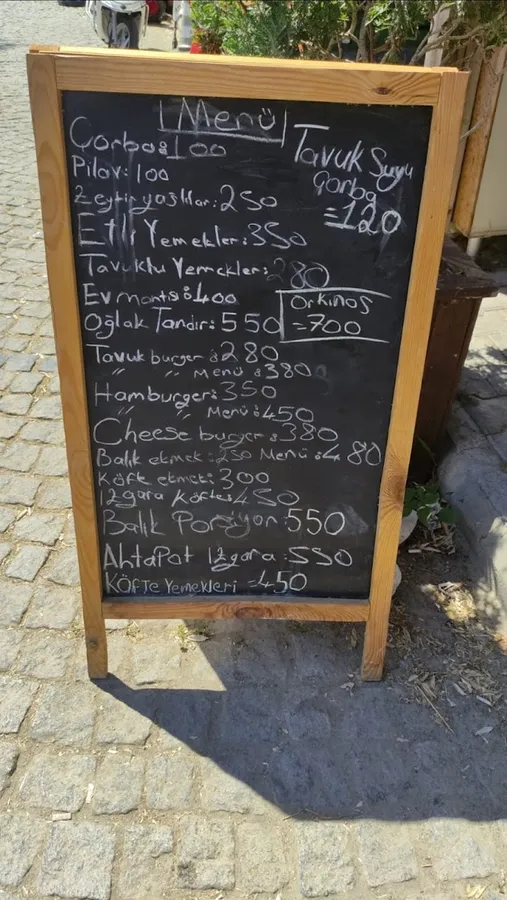 Menü
Çorba: 100
Tavuk Suyu
Çorba
=120
Pilav: 100
Zeytinyağlılar: 250
Etli Yemekler: 350
Tavuklu Yemekler: 280
Ev mantısı: 400
Orkinos
=700
Oğlak Tandır: 550
Tavuk burger: 280
" " Menü: 380
Hamburger: 350
" " Menü: 450
Cheese burger: 380
Balık ekmek: 250 Menü: 480
Köfte ekmek: 300
Izgara Köfte: 450
Balık Porsiyon: 550
AhtaPot Izgara: 550
Köfte Yemekleri =450